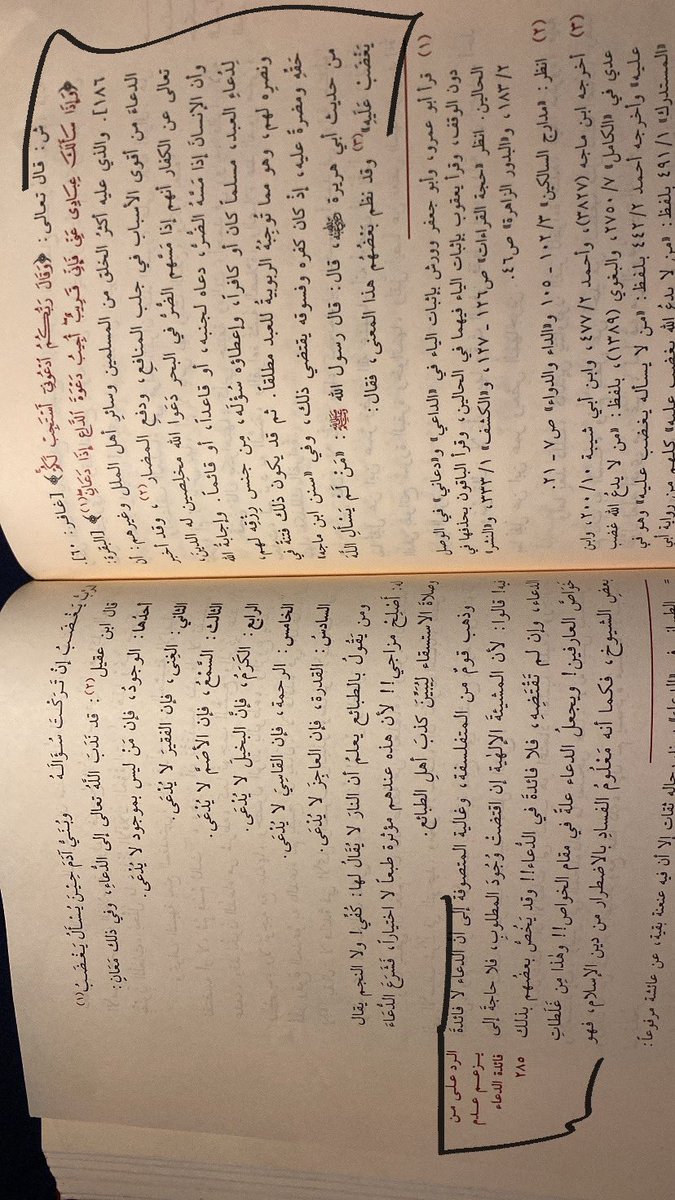 ش: قال تعالى: ﴿وَقَالَ رَبُّكُمُ ادْعُونِي أَسْتَجِبْ لَكُمْ﴾ [غافر: ٦٠].
﴿وَإِذَا سَأَلَكَ عِبَادِي عَنِّي فَإِنِّي قَرِيبٌ أُجِيبُ دَعْوَةَ الدَّاعِ إِذَا دَعَانِ﴾(١) [البقرة:
١٨٦]. والذي عليه أكثرُ الخلق من المسلمين وسائرِ أهل الملل وغيرهم: أن
الدعاءَ من أقوى الأسباب في جلب المنافعِ، ودفعِ المضار(٢)، وقد أخبر
تعالى عن الكفار أنهم إذا مسَّهم الضُّر في البحر دَعَوُا الله مخلصين له الدينَ،
وأن الإنسانَ إذا مَسَّهُ الضُّرُّ، دعاه لجنبه، أو قاعداً، أو قائماً. وإجابةُ اللهِ
لِدُعاءِ العبد، مسلماً كان أو كافراً، وإعطاؤه سُؤْلَه، مِن جنسِ رزقِه لهم،
ونصرِه لهم، وهو مما تُوجِبُهُ الربوبيةُ للعبد مطلقاً. ثم قد يكون ذلك فتنةً في
حَقِّهِ ومضرةً عليه، إذ كان كفرُه وفسوقُه يقتضي ذلك، وفي «سنن ابن ماجه»
من حديث أبي هريرة رضي الله عنه، قال: قال رسول الله ﷺ: «مَنْ لَمْ يَسْأَلِ اللهَ
يَغْضَبْ عَلَيْهِ»(٣) وقد نظم بَعْضُهُم هذا المعنى، فقال:
(١) قرأ أبو عمرو، وأبو جعفر وورش بإثبات الياء في «الداعي» و«دعاني» في الوصل
دون الوقف، وقرأ يعقوب بإثبات الياء فيهما في الحالين، وقرأ الباقون بحذفها في
الحالين. انظر «حجة القراءات» ص١٢٦ ـ ١٢٧، و«الكشف» ٣٣٣/١، و«النشر»
١٨٣/٢، و«البدور الزاهرة» ص٤٦.
(٢) انظر: «مدارج السالكين» ١٠٢/٣ ـ ١٠٥ و«الداء والدواء» ص٧ ـ ٢١.
(٣) أخرجه ابن ماجه (٣٨٢٧)، وأحمد ٤٧٧/٢، وابن أبي شيبة ٢٠٠/١٠، وابن
عدي في «الكامل» ٢٧٥٠/٧، والبغوي (١٣٨٩)، بلفظ: «من لا يدعُ الله غضب
عليه» وأخرجه أحمد ٤٤٢/٢ بلفظ: «من لا يسأله يغضب عليه» وهو في
«المستدرك» ٤٩١/١ بلفظ: «من لا يدعُ الله يغضب عليه» كلهم من رواية أبي
يَغْضَبُ إِنْ تَرَكْتَ سُؤَالَهُ وَبُنَيُّ آدَمَ حِيْنَ يُسْأَلُ يَغْضَبُ(١)
قال ابن عقيل(٢): قد نَدَبَ اللَّهُ تعالى إلى الدُّعاءِ، وفي ذلك مَعَانٍ:
أحدُها: الوجودُ، فإن مَنْ ليس بموجود لا يُدْعَى.
الثاني: الغِنى، فإن الفقيرَ لا يُدْعَى.
الثالث: السَّمْعُ، فإن الأصمَّ لا يُدْعَى.
الرابع: الكَرَمُ، فإنَّ البخيلَ لا يُدْعَى.
الخامس: الرحمة، فإن القاسِيَ لا يُدْعَى.
السادسُ: القدرة، فإن العاجِزَ لا يُدْعَى.
ومن يَقُولُ بالطبائع يعلمُ أن النارَ لا يُقَالُ لها: كُفِّي! ولا النجم يقال
له: أَصْلِحْ مزاجي!! لأن هذه عندهم مؤثرة طبعاً لا اختياراً، فَشَرَعَ الدُّعَاءَ
وصلاةَ الاستسقاء لِيُبَيِّنَ كَذبَ أهلِ الطبائعِ.
وذهب قومٌ من المتفلسفة، وغالية المتصوفة إلى أن الدعاء لا فائدةَ
فيه! قالوا: لأن المشيئةَ الإلهية إن اقتضتْ وُجُودَ المطلوبِ، فلا حاجةَ إلى
الدعاء، وإن لم تَقْتَضِهِ، فلا فائدةَ في الدُّعاء!! وقد يَخُصُّ بعضُهم بذلك
خَوَاصَّ العارفين! ويجعلُ الدعاء علةً في مقام الخواص!! وهذا مِن غَلَطَاتِ
بعض الشيوخ، فكما أنه مَعْلُومُ الفسادِ بالاضطرار من دين الإسلام، فهو
الرد على من
يزعم عدم
فائدة الدعاء
٢٨٥
رجاله ثقات إلا أن فيه عنعنة بقية، عن عائشة مرفوعاً: